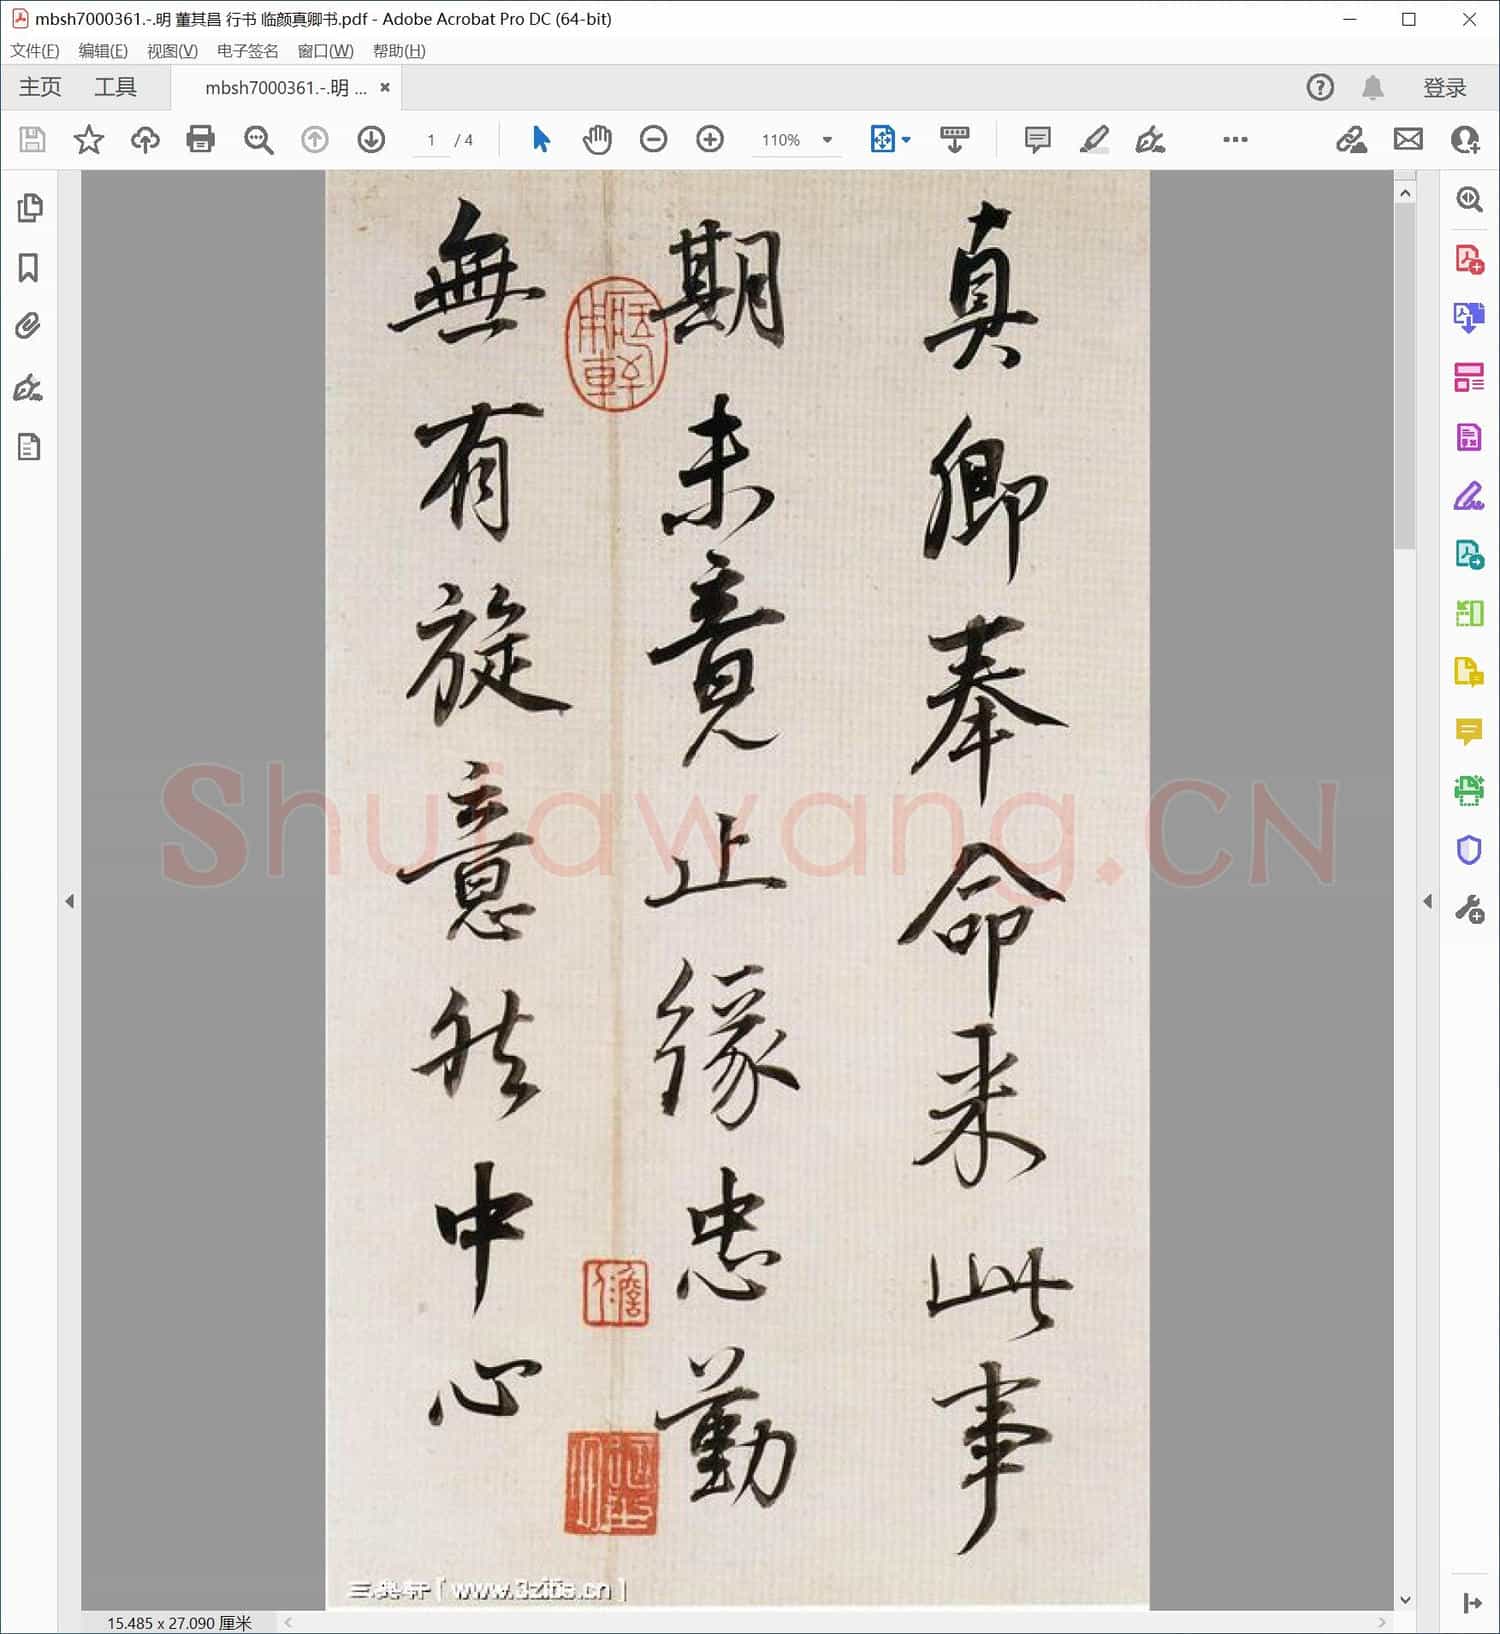 mbsh7000361.-.明 董其昌 行书 临颜真卿书.pdf - Adobe Acrobat Pro DC (64-bit)
文件(F) 编辑(E) 视图(V) 电子签名 窗口(W) 帮助(H)
主页 工具 mbsh7000361.-.明 ... × 登录
1 / 4 110%
真卿奉命来此事
期未竟止缘忠勤
無有旋意然中心
Shufawang.CN
www.3zitie.cn
15.485 x 27.090 厘米